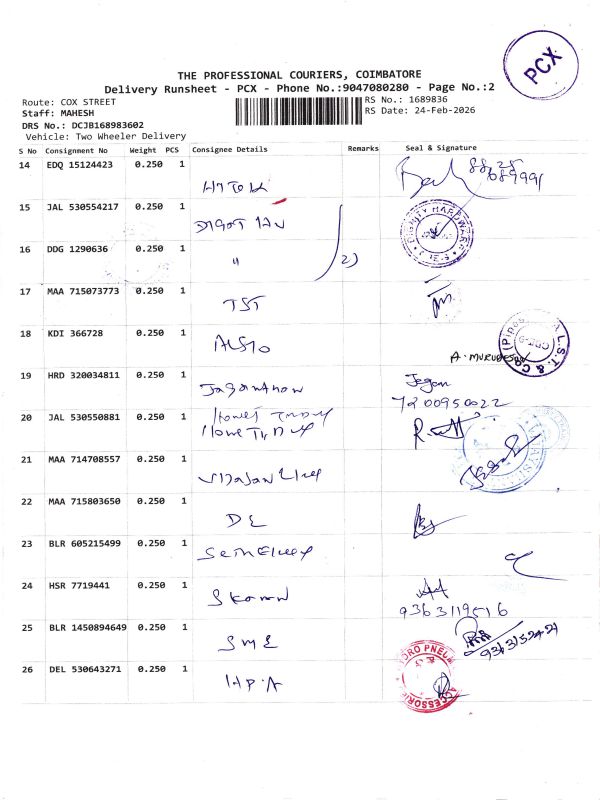 PCX
THE PROFESSIONAL COURIERS, COIMBATORE
Delivery Runsheet - PCX - Phone No.:9047080280 - Page No.:2
Route: COX STREET
RS No.: 1689836
Staff: MAHESH
RS Date: 24-Feb-2026
DRS No.: DCJB168983602
Vehicle: Two Wheeler Delivery
S No Consignment No Weight PCS Consignee Details Remarks Seal & Signature
14 EDQ 15124423 0.250 1
15 JAL 530554217 0.250 1
DIGNITY HARDWARE
16 DDG 1290636 0.250 1 " 2)
17 MAA 715073773 0.250 1 TST
18 KDI 366728 0.250 1
A. MURUGESAN
L.S.T. & CO
19 HRD 320034811 0.250 1 Jaganathan Jegan
7200950022
20 JAL 530550881 0.250 1
21 MAA 714708557 0.250 1
22 MAA 715803650 0.250 1 DE
23 BLR 605215499 0.250 1
24 HSR 7719441 0.250 1
9363119516
25 BLR 1450894649 0.250 1 SME
26 DEL 530643271 0.250 1 HPA
HYDRO PNEUM ACCESSORIES